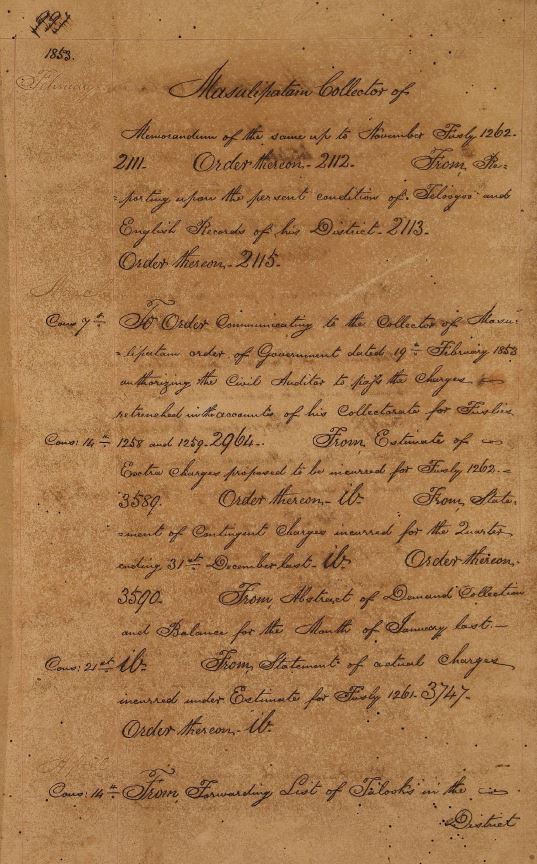 991
1853.
February
Masulipatam Collector of
Memorandum of the same up to November Fusly 1262-
2111. Order thereon- 2112. From, Re-
-porting upon the present condition of Teloogoo and
English Records of his District- 2113-
Order thereon,- 2115.
Cons: 7th To Order Communicating to the Collector of Masu-
-lipatam order of Government dated 19th February 1853
authorizing the Civil Auditor to pass the Charges
retrenched in the accounts of his Collectorate for Fuslies
Cons: 14th 1258 and 1259- 2964- From, Estimate of
Exctra Charges proposed to be incurred for Fusly 1262.-
3589. Order thereon,- ib- From, State-
-ment of Contingent Charges incurred for the Quarter
ending 31st December last- ib- Order thereon,-
3590- From, Abstract of Demand Collection
and Balance for the Month of January last.-
Cons: 21st ib- From, Statement of actual Charges
incurred under Estimate for Fusly 1261- 3747-
Order thereon,- ib-
Cons: 14th From, Forwarding List of Talooks in the
District